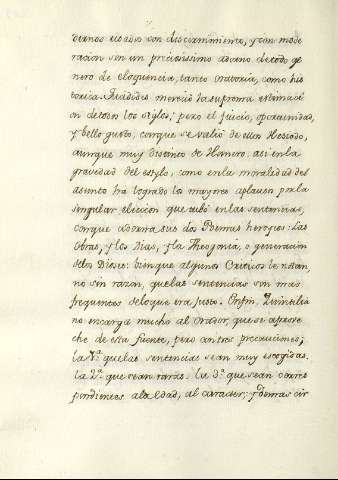 usados con discernimiento, y con mode
racion son un preciosissimo adorno de todo ge
nero de eloquencia, tanto oratoria, como his
torica. mereciò la suprema estimaci
on de todos los siglos; pero el juicio, oportunidad,
y bello gusto, con que se valiò de ellas Hesiodo,
aunque muy distinto de Homero. asi en la
gravedad del estylo, como en la moralidad del
asunto ha logrado los mayores aplausos por la
singular eleccion que tubò en las sentencias,
con que adorna sus dos Poemas heroycos: las
Obras, y los Dias, y la Theogonia, o generacion
de los Dioses: bienque algunos Criticos le notan,
no sin razon, que las sentencias son mas
frequentes de lo que era justo. Enfin, Quintilia
no encarga mucho al Orador, que se aprove
che de esta fuente, pero con tres precauciones;
la 1.ª que las sentencias sean muy escogidas.
la 2.ª que sean raras. la 3.ª que sean corres
pondientes a la Edad, al caracter; y demas cir